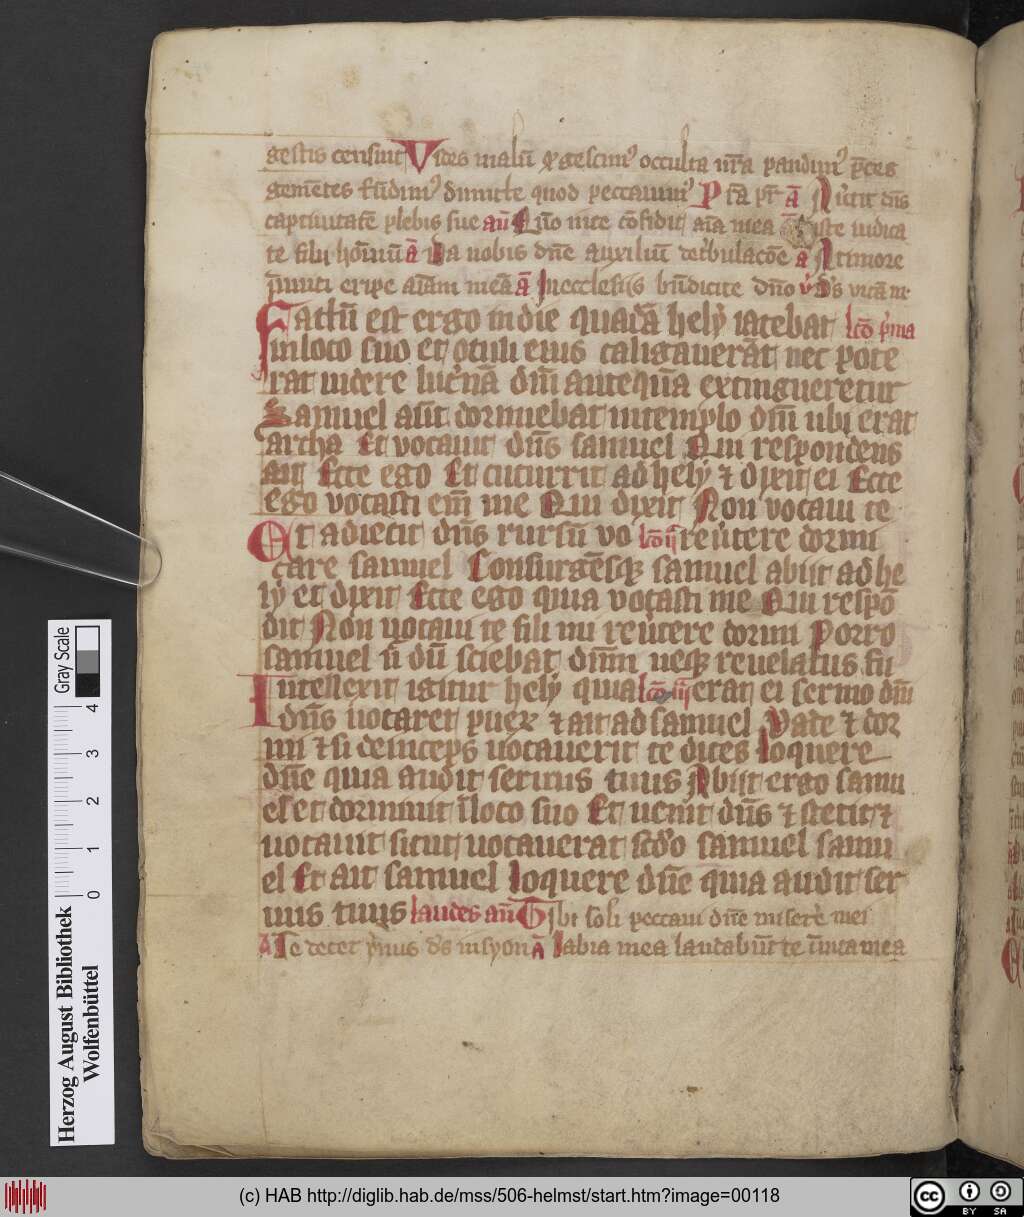 gestis censuit Vides malū q̄ gessim⁹ occulta nr̄a pandim⁹ p̄ces
gemētes fūdim⁹ dimitte quod peccauim⁹ P fīa pr̄ a Au̓tit dn̄s
captiuitatē plebis sue an̄ Qūo in te cōfidit aīa mea ā Iuste iudica
te filij hōīnū a Da nobis dn̄e auxiliū de tribulacōe a A timore
inimici eripe aīam meā ā In ecclesiis bn̄dicite dn̄o v̓ Ds̄ vitā m̄
Factū est ergo in die quadā hely iacebat lc̄o p̓ma
in loco suo et oculi eius caligauerāt nec pote
rat videre lucernā dn̄i anteqūa extingueretur
Samuel aūt dormiebat in templo dn̄i ubi erat
archa Et vocauit dn̄s samuel Qui respondens
ait Ecce ego Et cucurrit ad hely ⁊ dixit ei Ecce
ego vocasti em̄ me Qui dixit Non vocaui te
Et adiecit dn̄s rursū vo lc̄o ij reu̓tere dormi
care samuel Consurgēsq̄ samuel abiit ad he
ly et dixit Ecce ego quia vocasti me Qui respō
dit Non uocaui te fili mi reu̓tere dormi Porro
samuel n̄ dū sciebat dn̄m neq̄ reuelatus fu
Intellexit igitur hely quia lc̄o iij erat ei sermo dn̄i
dn̄s uocaret puer̄ ⁊ ait ad samuel Vade ⁊ dor
mi ⁊ si deinceps uocauerit te dices loquere
dn̄e quia audit seruus tuus Abiit ergo samu
el et dormiuit ī loco suo Et uenit dn̄s ⁊ stetit ⁊
uocauit sicut uocauerat sc̄do samuel samu
el Et ait samuel loquere dn̄e quia audit ser
uus tuus laudes an̄ Tibi soli peccaui dn̄e miserē mei
A Te decet ymnus ds̄ in syon ā Labia mea laudabūt te ī uita mea
Gray Scale
4
3
2
1
0
Herzog August Bibliothek
Wolfenbüttel
(c) HAB http://diglib.hab.de/mss/506-helmst/start.htm?image=00118
cc BY SA